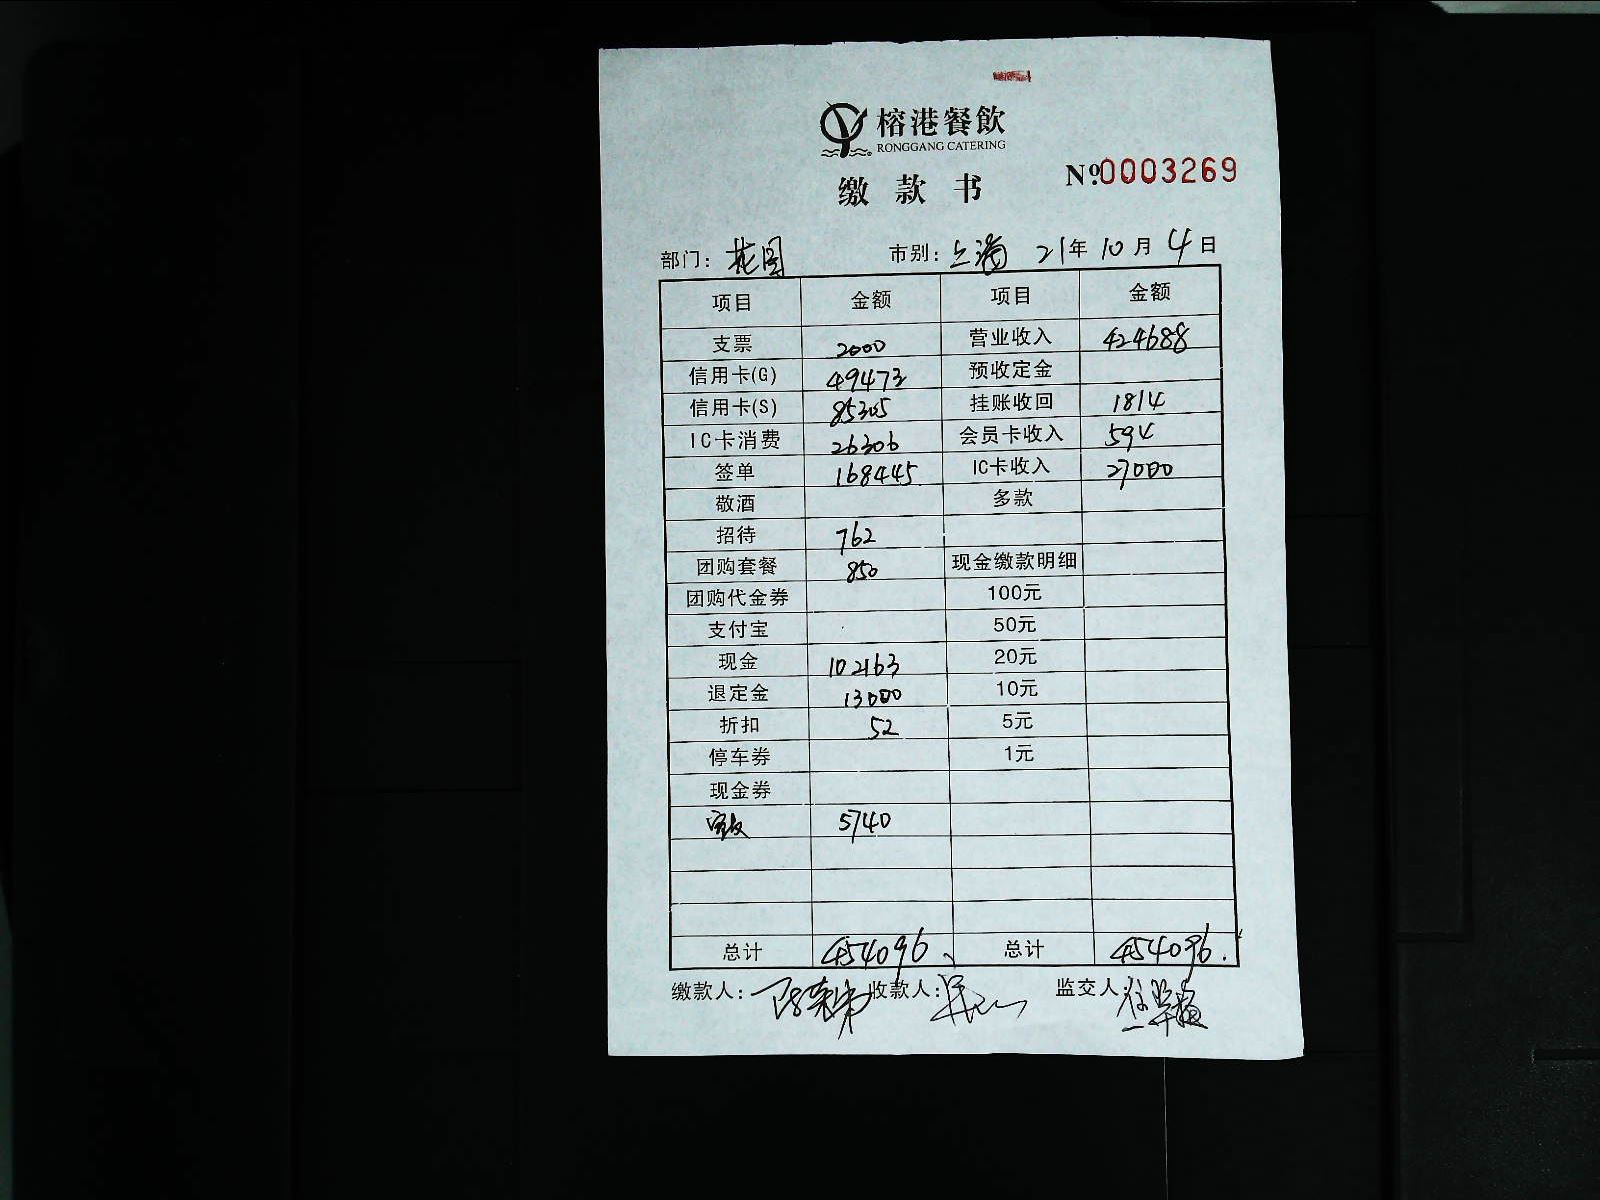 榕港餐飲
RONGGANG CATERING
№0003269
缴款书
部门: 花园 市别: 上海 21年10月4日
项目 金额 项目 金额
支票 2000 营业收入 424688
信用卡(G) 49473 预收定金
信用卡(S) 85305 挂账收回 1814
IC卡消费 26306 会员卡收入 594
签单 168445 IC卡收入 27000
敬酒 多款
招待 762
团购套餐 850 现金缴款明细
团购代金券 100元
支付宝 50元
现金 102163 20元
退定金 13000 10元
折扣 52 5元
停车券 1元
现金券
5740
总计 454096 总计 454096.
缴款人: 收款人: 监交人: